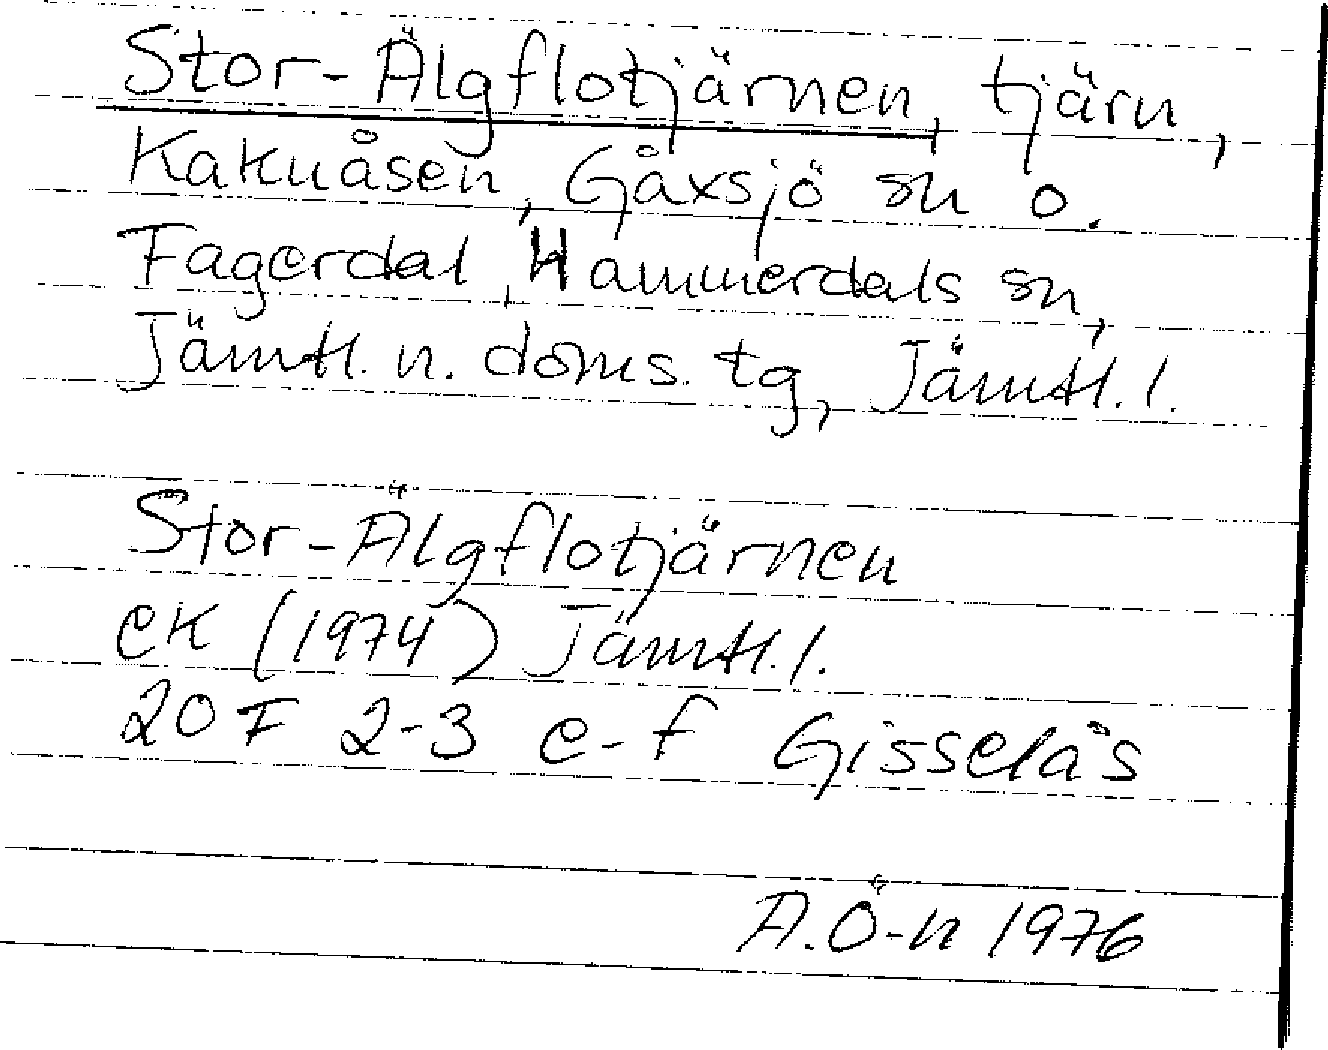 Stor-Älgflotjärnen, tjärn,
Kakuåsen, Gåxsjö sn o.
Fagerdal, Hammerdals sn,
Jämtl. n. doms. tg, Jämtl. l.
Stor-Älgflotjärnen
ek (1974) Jämtl. l.
20 F 2-3 e-f Gisselås
A.Ö-n 1976